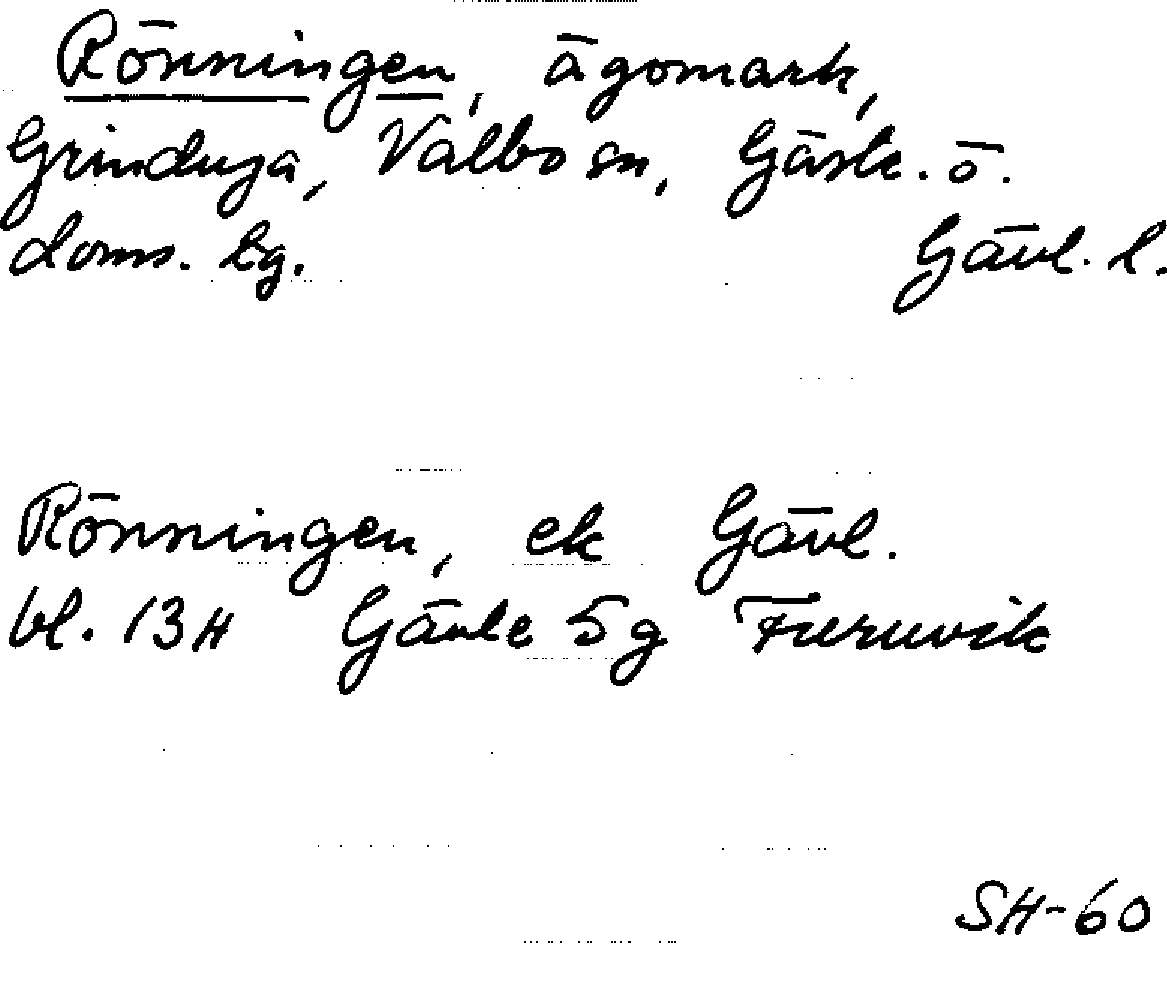 Rönningen, ägomark,
Grinduga, Valbo sn, Gästr. ö.
doms. lg. Gävl. l.
Rönningen, ek Gävl.
bl. 13H Gävle 5g Furuvik
SH-60